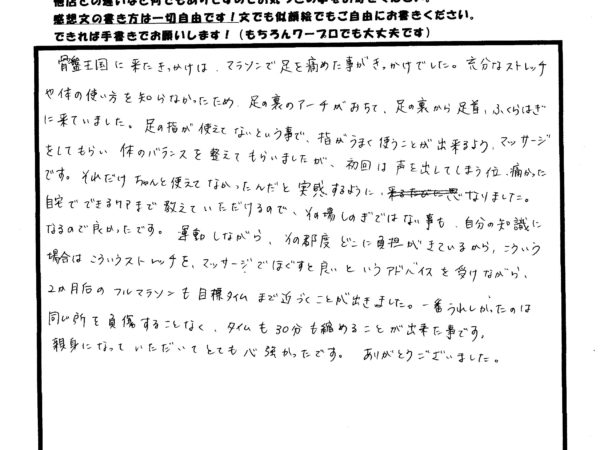 感想文の書き方は一切自由です！文でも似顔絵でもご自由にお書きください。
できれば手書きでお願いします！（もちろんワープロでも大丈夫です）
骨盤王国に来たきっかけは、マラソンで足を痛めた事がきっかけでした。充分なストレッチ
や体の使い方を知らなかったため、足の裏のアーチがおちて、足の裏から足首、ふくらはぎ
に来ていました。足の指が使えてないという事で、指がうまく使うことが出来るよう、マッサージ
をしてもらい体のバランスを整えてもらいましたが、初回は声を出してしまう位、痛かった
です。それだけちゃんと使えてなかったんだと実感するように、なりました。
自宅でできるケアまで教えていただけるので、その場しのぎではない事も、自分の知識に
なるので良かったです。運動しながら、その都度どこに負担がきているから、こういう
場合はこういうストレッチを、マッサージでほぐすと良いというアドバイスを受けながら、
2か月后のフルマラソンも目標タイムまで近づくことが出きました。一番うれしかったのは
同じ所を負傷することなく、タイムも30分も縮めることが出来た事です。
親身になっていただいてとても心強かったです。ありがとうございました。